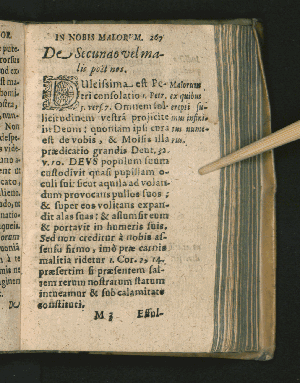 IN NOBIS MALORUM. 267
De Secundo vel ma-
lis post nos.
DUlcissima est Pe-
tri consolatio. 1. Petr.
5. vers. 7. Omnem sol-
licitudinem vestrã projicite
in Deum; quoniam ipsi cura
est de vobis, & Mosis illa
prædicatio grandis Deut. 32.
v. 10. DEVS populum suum
custodivit quasi pupillam o-
culi sui sicut aquila ad volan-
dum provocans pullos suos;
& super eos volitans expan-
dit alas suas: & assumsit eum
& portavit in humeris suis.
Sed non creditur à nobis as-
sensu firmo, imò præ carnis
malitia ridetur 1. Cor. 2, 14.
præsertim si præsentem sal-
tem rerum nostrarum statum
intueamur & sub calamitate
constituti.
M 3 Essul-
Malorum
ex quibus
erepti su-
mus infini-
tus nume-
rus.